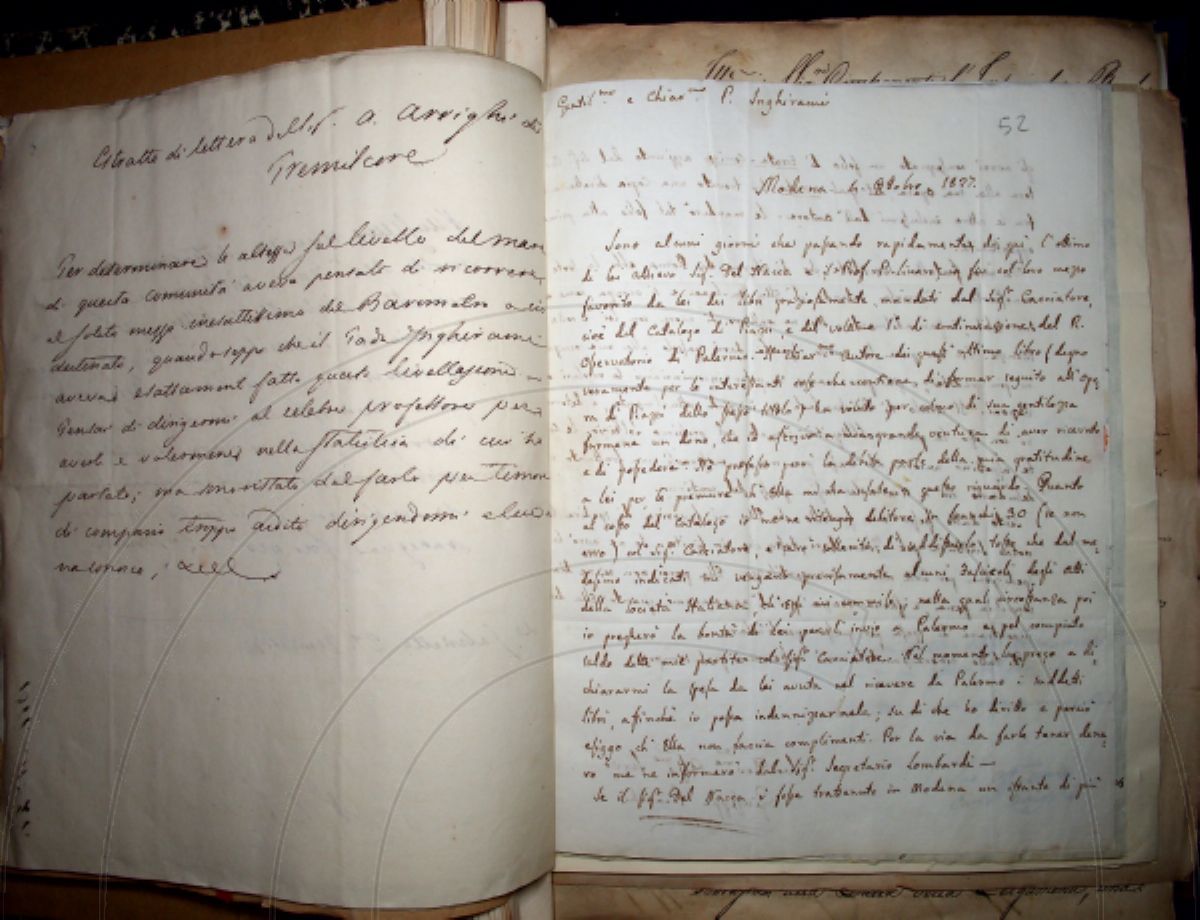 Estratto di lettera del Sig. A. Arrighi di
Tremilcore
Per determinare le altezze sul livello del mare
di questa comunità aveva pensato di ricorrere
al solito mezzo inesattissimo del Barometro
destinato, quando seppi che il Padre Inghirami
aveva esattamente fatte queste livellazioni
Pensai di dirigermi al celebre professore per
averle e valermene nella statistica di cui ho
parlato; ma sono ristato dal farlo per timore
di comparir troppo ardito dirigendomi a lui
Gentil.mo e Chiar.mo P. Inghirami
52
Modena 4. Ottobre 1827.
Sono alcuni giorni che passando rapidamente di qui l'ottimo
di lei allievo Sig. Del Nacca e il Prof. fui col loro mezzo
favorito da lei dei libri graziosamente mandati dal Sig. Cacciatore,
cioè del Catalogo di Piazzi, e del volume di continuazione del R.
Osservatorio di Palermo. autore di quest'ultimo libro (degno
veramente per le interessanti cose che contiene, di formar seguito all'Ope
ra di Piazzi dello stesso titolo) ha voluto per colmo di sua gentilezza
farmene un dono, che io ascrivo a mia grande ventura di aver ricevuto
e di possedere. Ne professo però la debita parte della mia gratitudine
a lei per le premure ch'Ella mi ha usate in questo riguardo. Quanto
al costo del Catalogo io me ne ritengo debitore in franchi 30 (se non
erro) col Sig. Cacciatore, e sarò sollecito di soddisfarlo, tosto che dal me
desimo indicati mi vengano precisamente alcuni Fascicoli degli atti
della Società Italiana, nella qual circostanza poi
io pregherò la bontà di Lei per l'invio a Palermo e pel compiuto
saldo delle mie partite col Sig. Cacciatore. Nel momento, la prego a di
chiararmi la spesa da lei avuta nel ricevere da Palermo i suddetti
libri, affinchè io possa indennizzarnela; su di che ho diritto e perciò
esiggo ch'Ella non faccia complimenti. Per la via da farle tener dena
ro me ne informerò dal Sig. Segretario Lombardi —
Se il Sig. Del Nacca si fosse trattenuto in Modena un istante di più